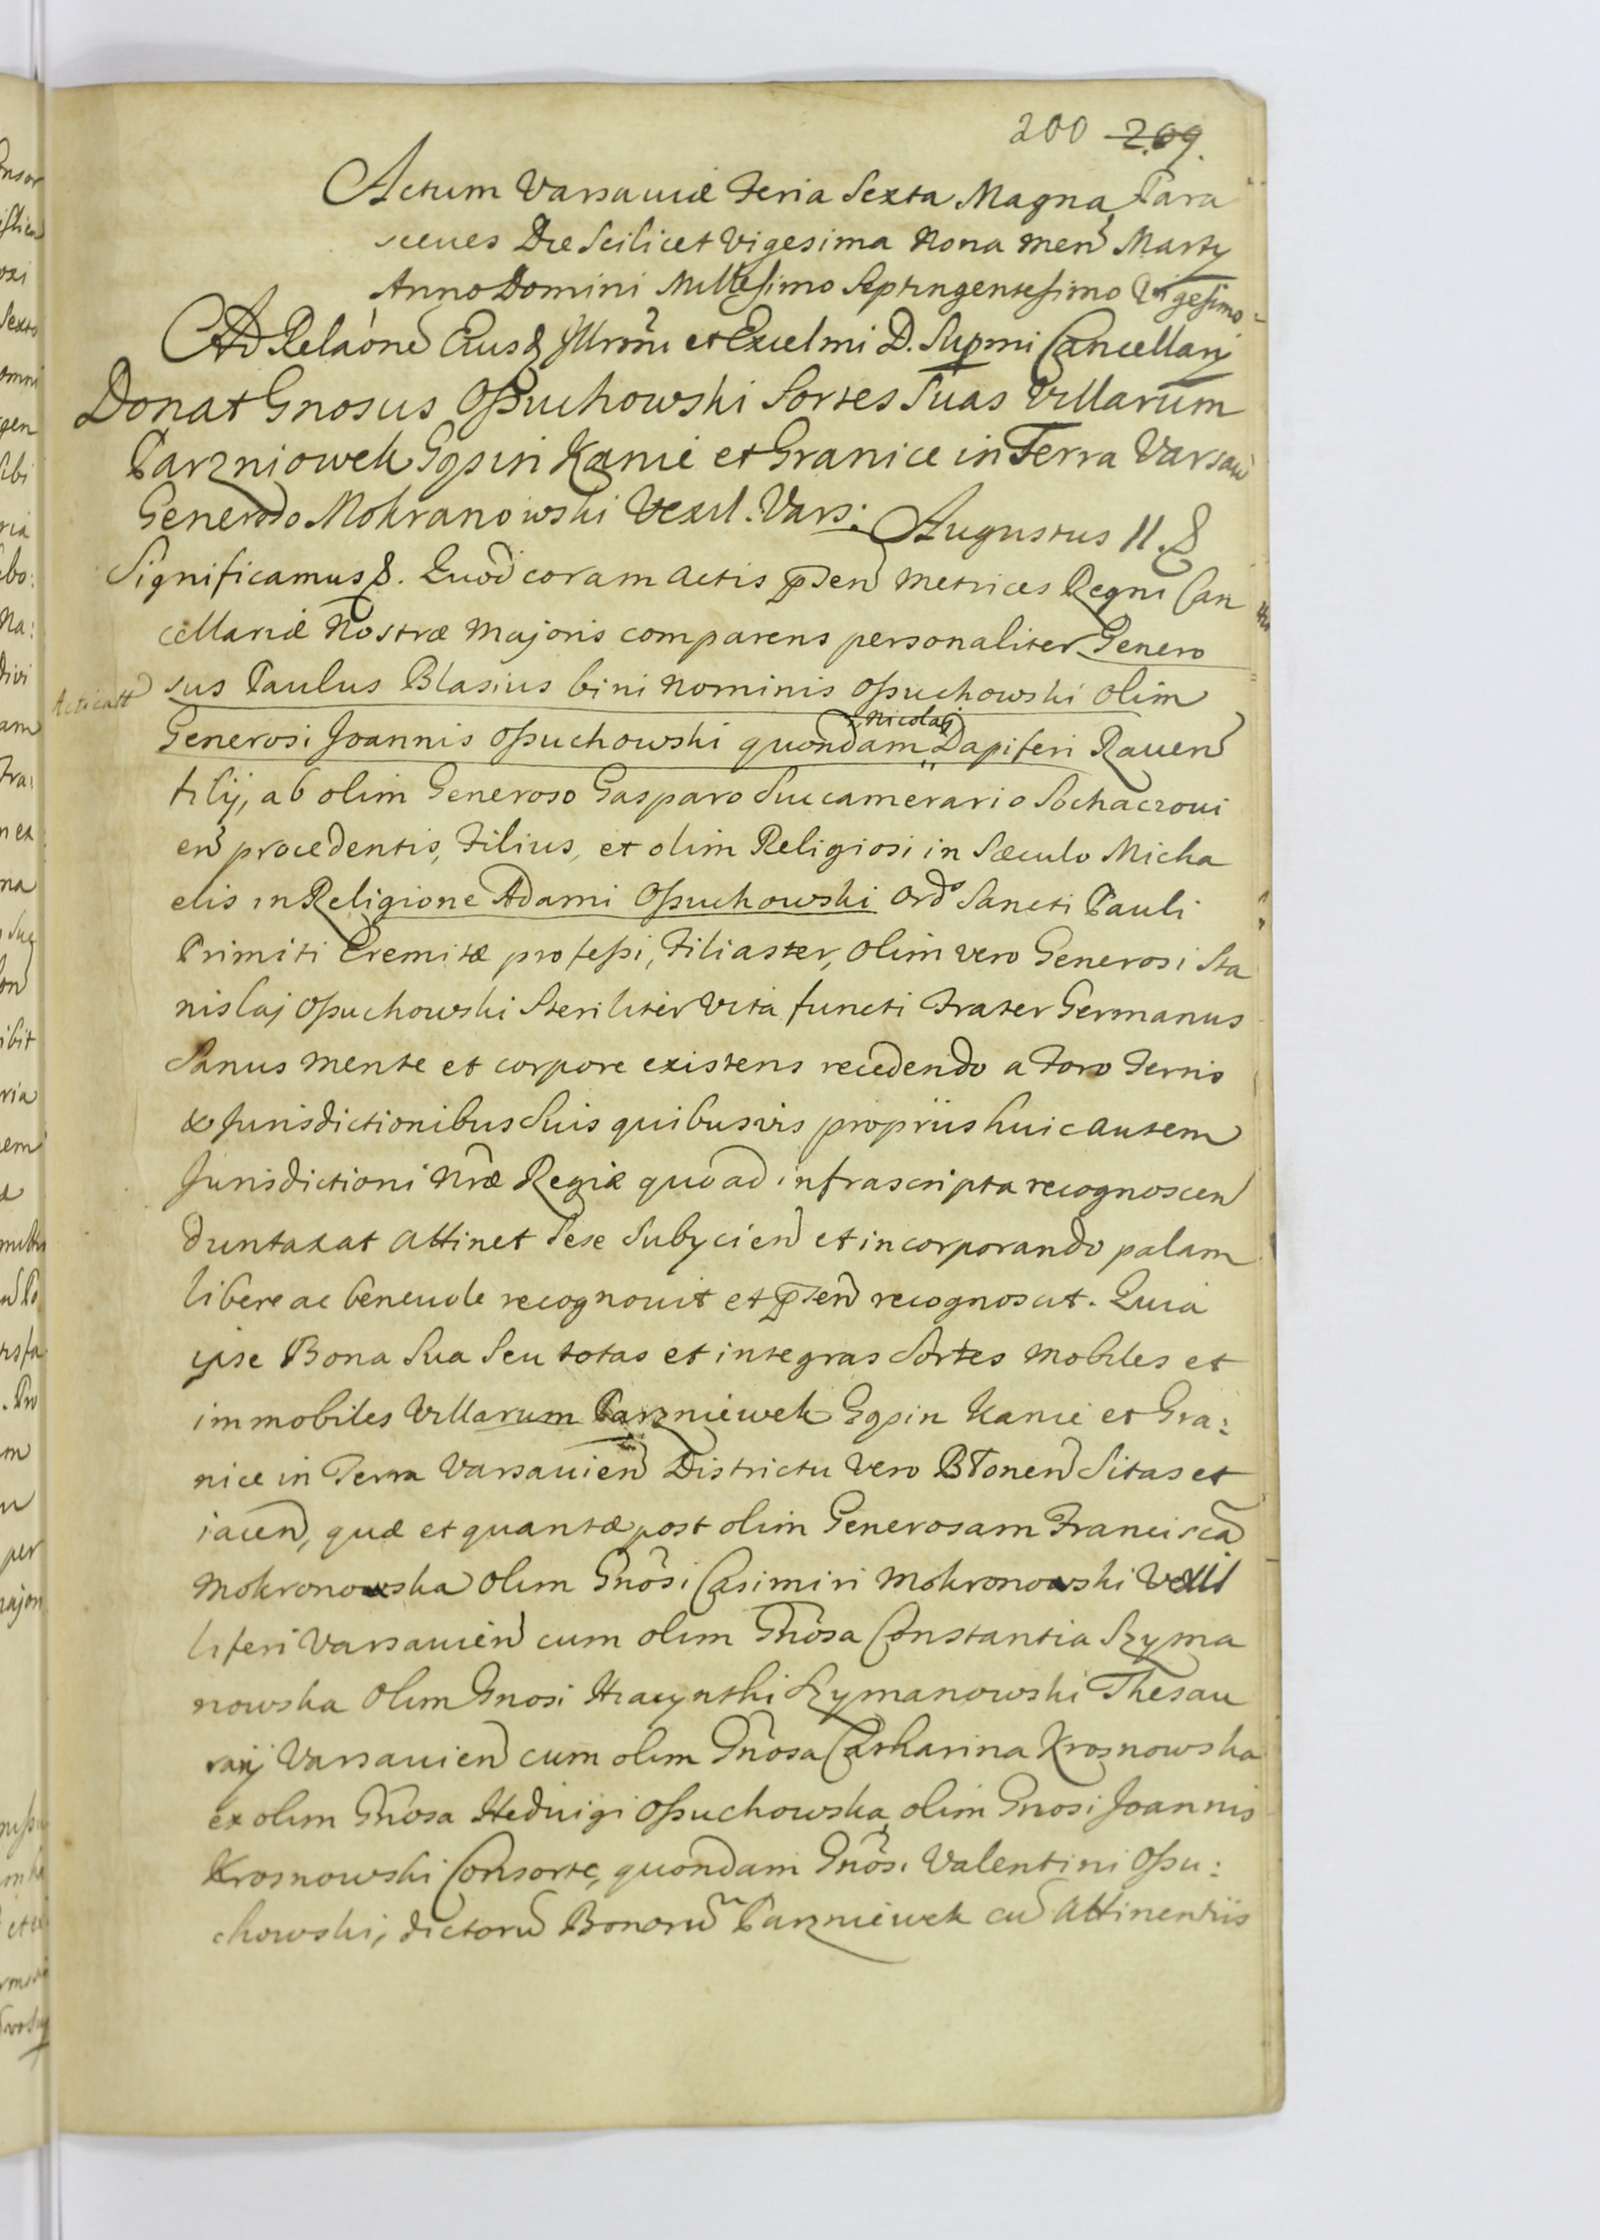 200 209.
Actum Varsaviæ Feria Sexta Magna Para
sceues Die Scilicet Vigesima Nona Men Martij
Anno Domini Millesimo Septingentesimo Vigesimo
Ad Relaõne Eiusd Illrmi et Excelmi D. Supmi Cancellarij
Donat Gnosus Ossuchowski Sortes Suas Villarum
Parzniowek Gąsin Kanie et Granice in Terra Varsav
Generoso Mokranowski Vexil. Vars: Augustus II. &
Significamus &. Quod coram Actis pñsen Metrices Regni Can
cellariæ Nostræ Majoris comparens personaliter Genero
sus Paulus Blasius bini nominis Ossuchowski olim
Generosi Joannis Ossuchowski quondam Nicolai Dapiferi Raven
filij, ab olim Generoso Gasparo Succamerario Sochaczovi
en procedentis, Filius, et olim Religiosi in Sæculo Micha
elis in Religione Adami Ossuchowski Ord Sancti Pauli
Primiti Eremitæ professi, Filiaster, olim vero Generosi Sta
nislaj Ossuchowski Steriliter Vita functi Frater Germanus
Sanus mente et corpore existens recedendo a Foro Terris
& Jurisdictionibus Suis quibusvis proprijs huic autem
Jurisdictioni Nræ Regiæ quoad infrascripta recognoscen
duntaxat attinet Sese Subycien et incorporando palam
libere ac benevole recognovit et pñsen recognoscit. Quia
ipse Bona Sua Seu totas et integras Sortes mobiles et
immobiles Villarum Parzniewek Gąsin Kanie et Gra:
nice in Terra Varsavien Districtu Vero Błonen Sitas et
iacen, quæ et quantæ post olim Generosam Franciscã
Mokronowska olim Gnosi Casimiri Mokronowski Vexil
liferi Varsavien cum olim Gnosa Constantia Szyma
nowska olim Gnosi Hiacynthi Szymanowski Thesau
rarij Varsavien cum olim Gnosa Catharina Krosnowska
ex olim Gnosa Hedvigi Ossuchowska olim Gnosi Joannis
Krosnowski Consorte, quondam Gnosi Valentini Ossu:
chowski, dictorũ Bonorũ Parzniewek cũ Attinentijs